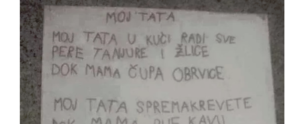 MOJ TATA
MOJ TATA U KUĆI RADI SVE
PERE TANJURE I ŽLICE
DOK MAMA ČUPA OBRVICE
MOJ TATA SPREMAKREVETE
DOK MAMA PIJE KAVU